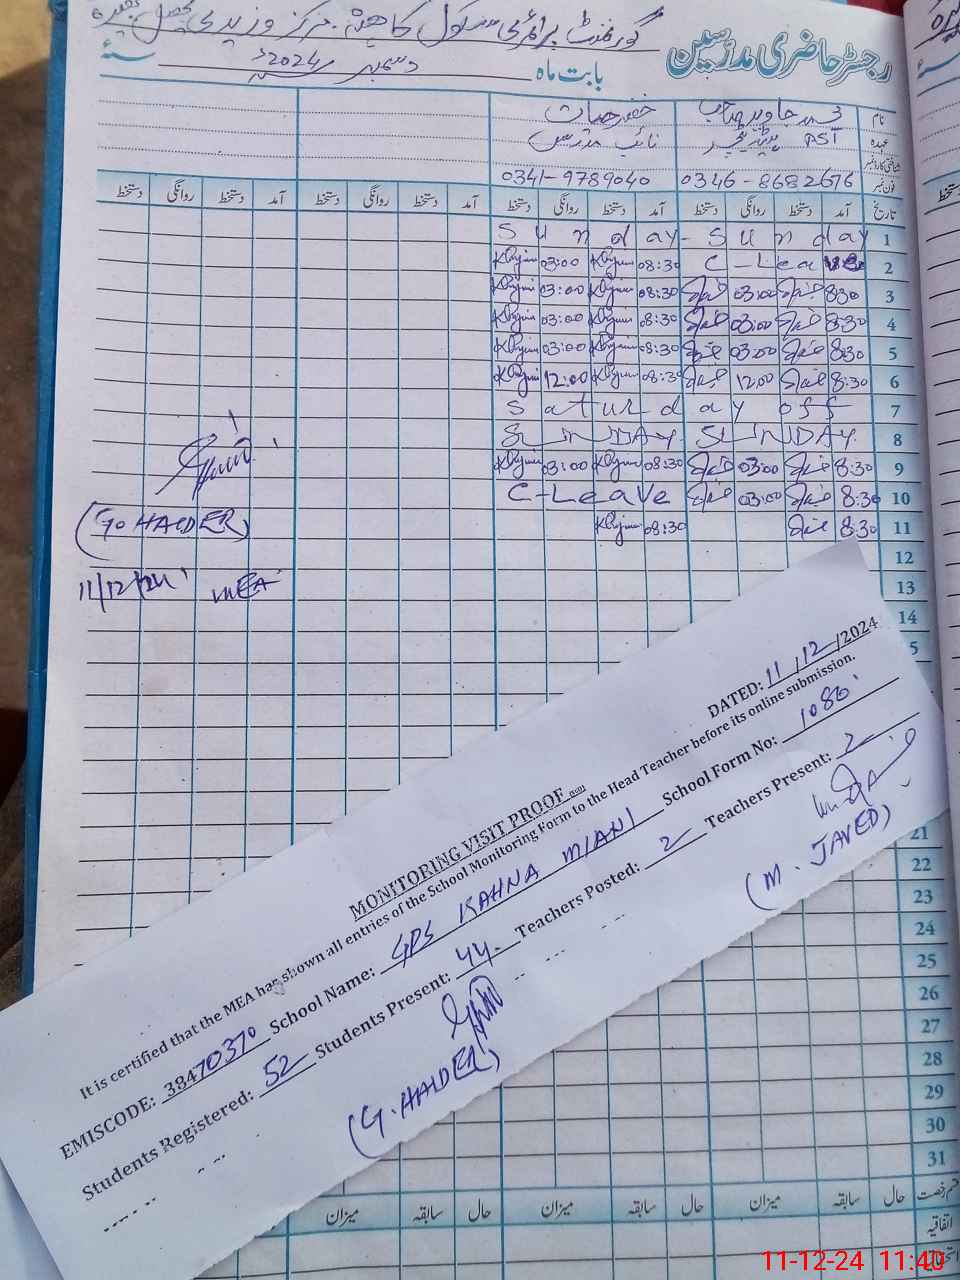 رجسٹر حاضری مدرسین
گورنمنٹ پرائمری سکول مرکز
بابت ماہ دسمبر 2024ء سنہ
نام
عہدہ PST نائب مدرس
شناختی کارڈ نمبر
فون نمبر 0346-8682676 0341-9789040
تاریخ آمد دستخط روانگی دستخط آمد دستخط روانگی دستخط آمد دستخط روانگی دستخط آمد دستخط روانگی دستخط
Sunday - Sunday 1
03:00 08:30 C-Lea 2
03:00 08:30 03:00 8:30 3
03:00 08:30 03:00 8:30 4
03:00 08:30 03:00 8:30 5
12:00 08:30 12:00 8:30 6
Saturday off 7
SUNDAY SUNDAY 8
03:00 08:30 03:00 8:30 9
C-Leave 03:00 8:30 10
08:30 8:30 11
(G. HAIDER)
12
11/12/24 MEA 13
14
5
21
22
23
24
25
26
27
28
29
30
31
MONITORING VISIT PROOF
DATED: 11/12/2024
It is certified that the MEA has shown all entries of the School Monitoring Form to the Head Teacher before its online submission.
EMISCODE: 38470370 School Name: GPS KAHNA MIANI School Form No: 1086
Students Registered: 52 Students Present: 44 Teachers Posted: 2 Teachers Present: 2
(G. HAIDER)
(M. JAVED)
قسم رخصت حال سابقہ میزان حال سابقہ میزان حال سابقہ میزان
اتفاقیہ
11-12-24 11:40